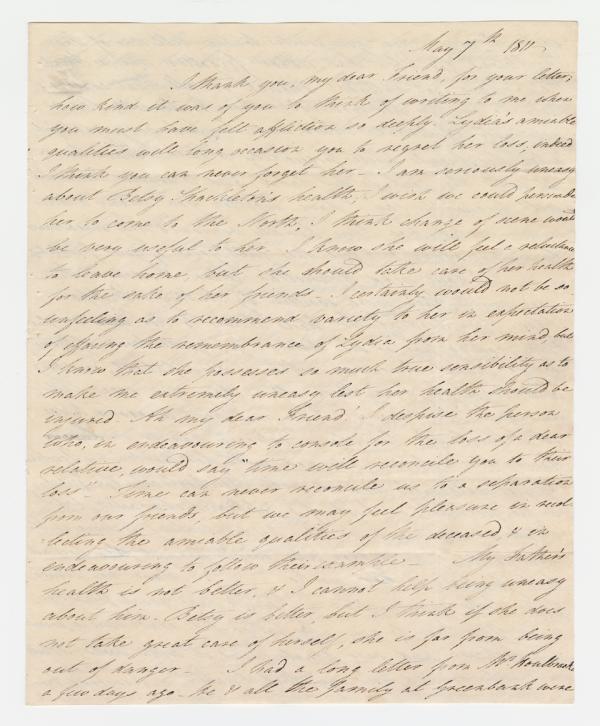 May 7th 1811
I thank you, my dear Friend, for your letter;
how kind it was of you to think of writing to me when
you must have felt affliction so deeply. Lydia's amiable
qualities will long occasion you to regret her loss, indeed
I think you can never forget her - I am seriously uneasy
about Betsy Shackleton's health, I wish we could persuade
her to come to the North, I think change of scene would
be very useful to her. I know she will feel a reluctance
to leave home, but she should take care of her health
for the sake of her friends - I certainly would not be so
unfeeling as to recommend variety to her in expectation
of effacing the remembrance of Lydia from her mind, but
I know that she possesses so much true sensibility as to
make me extremely uneasy lest her health should be
injured. Ah my dear Friend! I despise the person
who, in endeavouring to console for the loss of a dear
relative, would say "time will reconcile you to their
loss". Time can never reconcile us to a separation
from our friends, but we may feel pleasure in recol
lecting the amiable qualities of the deceased & in
endeavouring to follow their example - My Father's
health is not better, & I cannot help being uneasy
about him. Betsy is better, but I think if she does
not take great care of herself, she is far from being
out of danger - I had a long letter from
a few days ago - he & all the family at Greenbank were